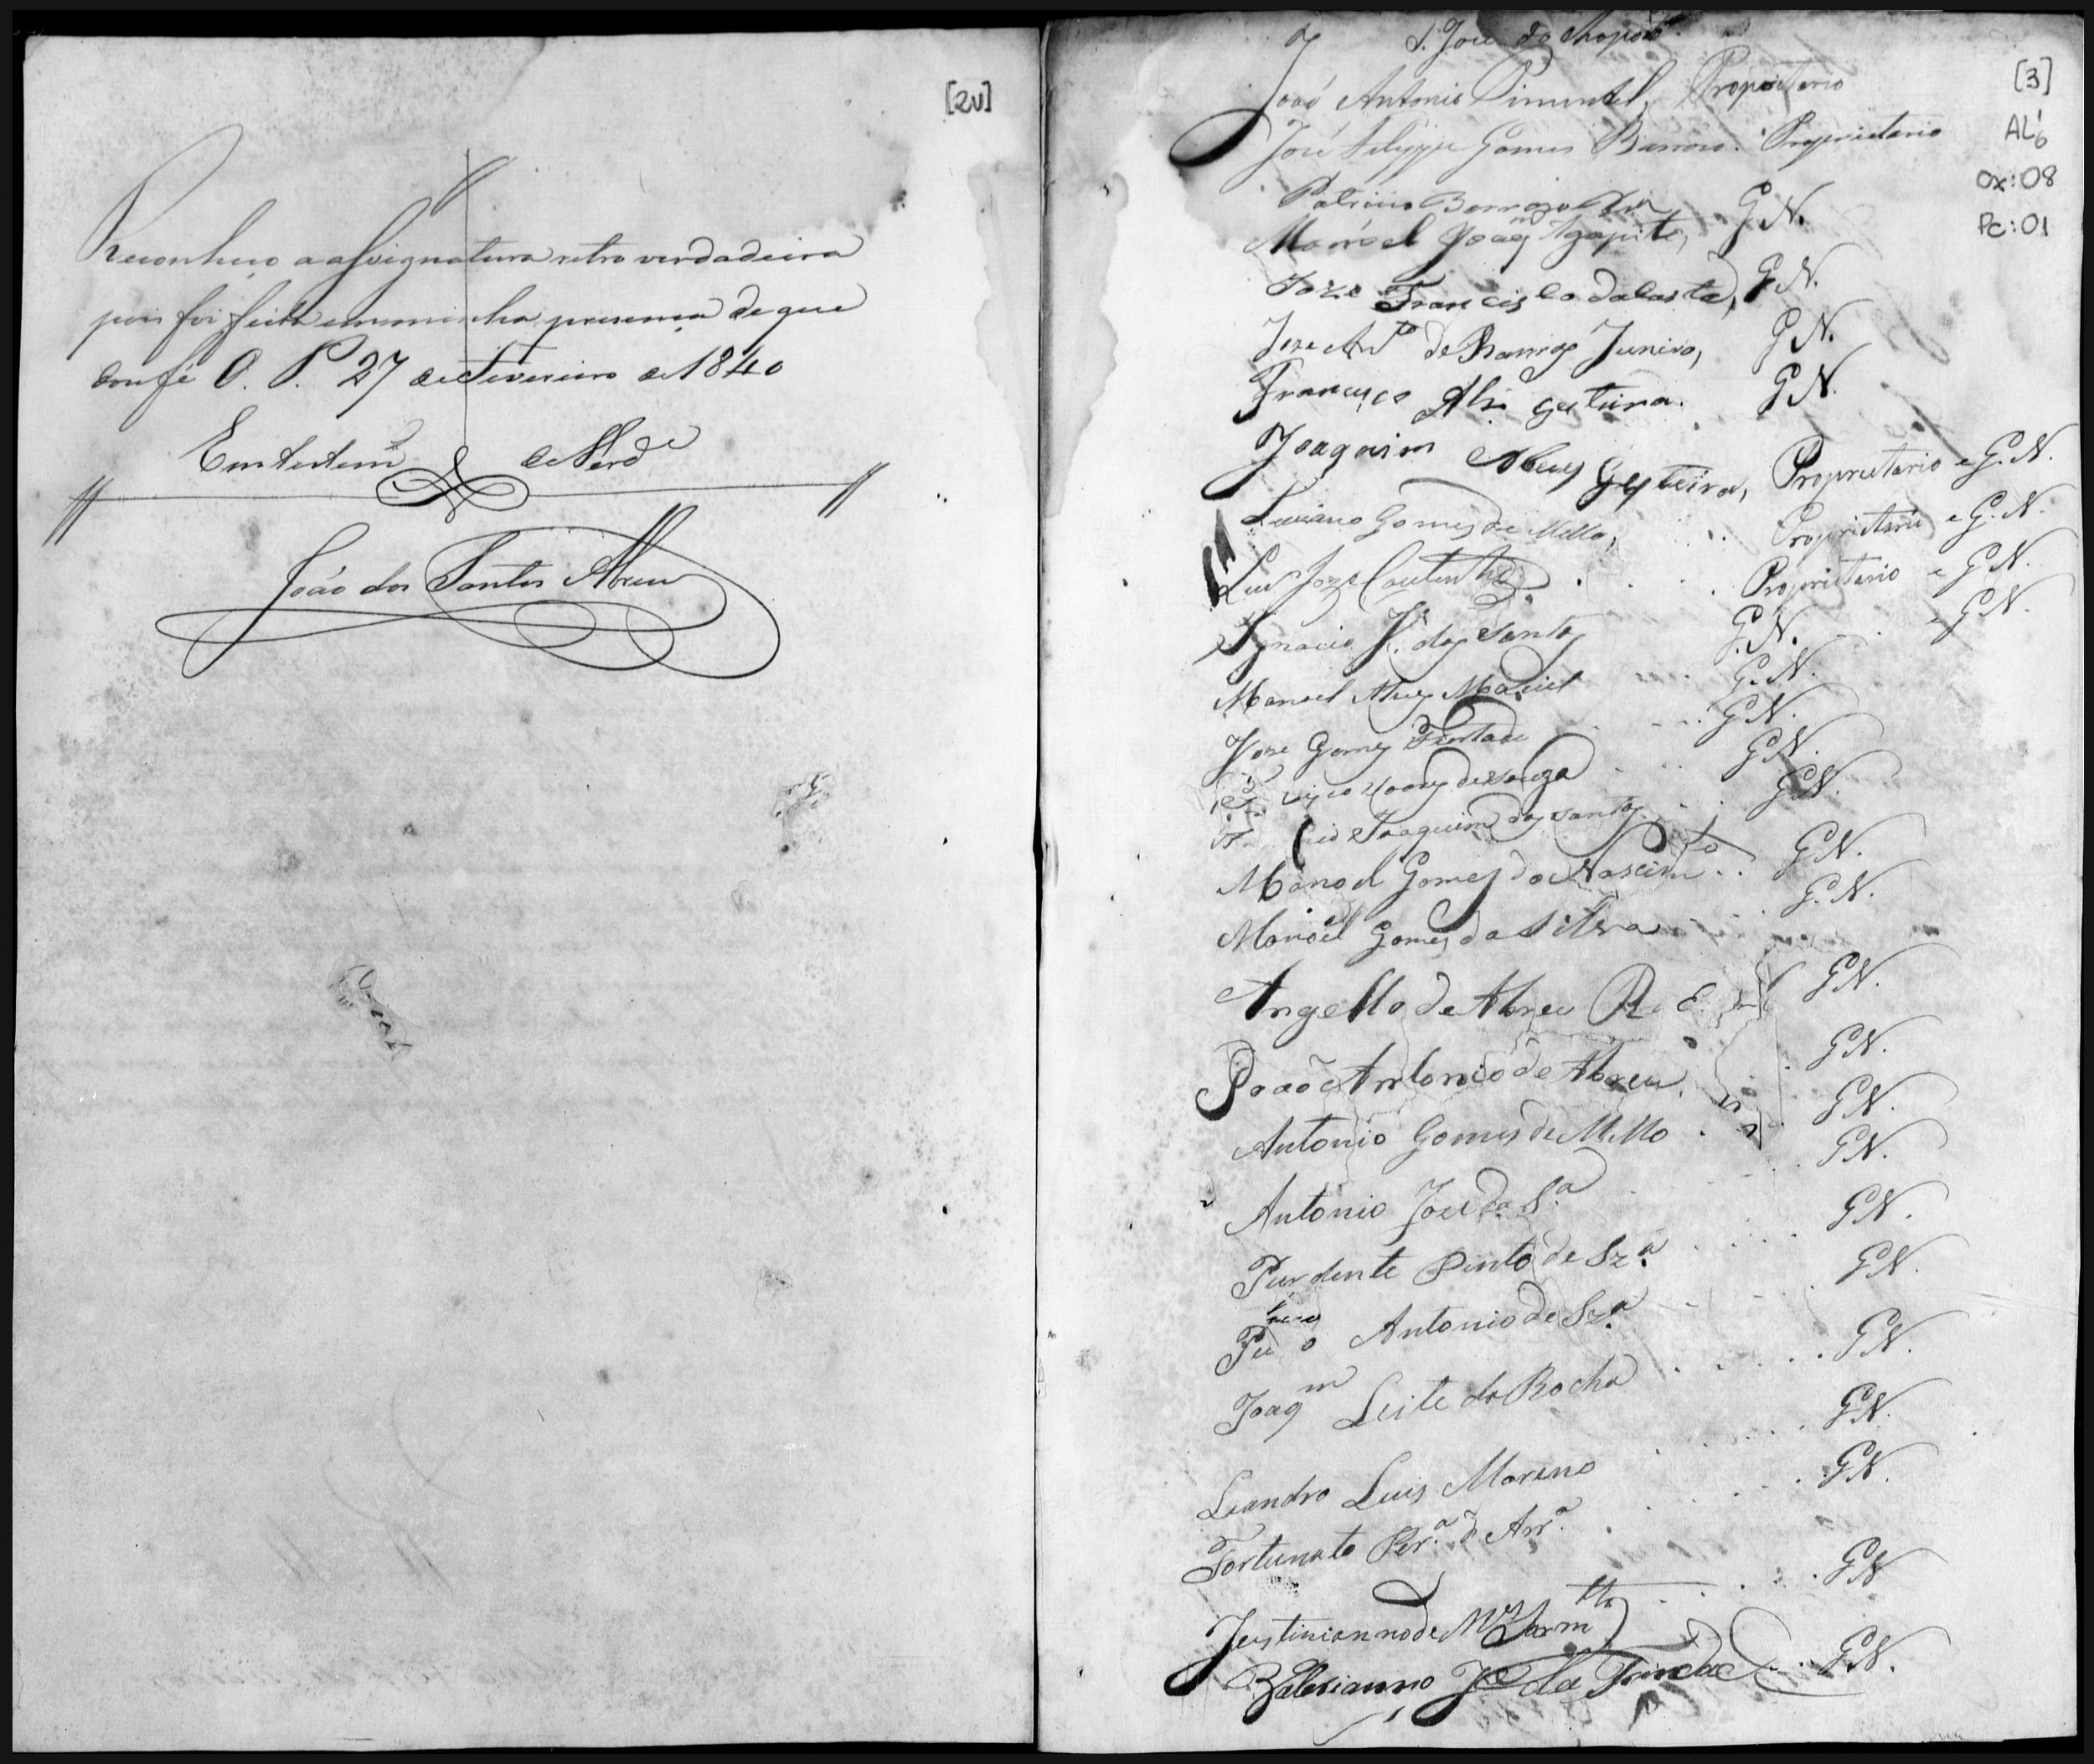 [2v]
Reconheço a assignatura retro verdadeira
pois foi feita em minha presença de que
dou fé O. P. 27 de Fevereiro de 1840
Em testem.º de Verd.e
João dos Santos Abreu
[3]
AL6
Cx:08
Pc:01
S. José do
João Antonio Pimentel, Proprietario
José Felippe Gomes Barroso. Proprietario
Patricio Barrozo G.N.
Manoel Joaq.m Agapito,
Joze Francisco da Costa, G.N.
Joze Ant.o de Ramos Juniro, G.N.
Francisco Alz. Gesteira. G.N.
Joaquim Alves Gesteira, Proprietario e G.N.
Luciano Gomes de Mello, Proprietario e G.N.
Luis Joze Coutinho Proprietario e G.N.
Ignacio J. dos Santos G.N. G.N.
Manoel Alves Maciel G.N.
Joze Gomes Furtado G.N.
de Souza G.N.
Joaquim dos Santos G.N.
Manoel Gomes do Nascim.to G.N.
Manoel Gomes da Silva G.N.
Angello de Abreu G.N.
João Antonio de Abreu G.N.
Antonio Gomes de Mello G.N.
Antonio José da S.a G.N.
Purdente Pinto de Sz.a G.N.
Antonio de Sz.a G.N.
Joaq.m Leite da Rocha G.N.
Leandro Luis Moreno G.N.
Fortunato Per.a d' Arr.o G.N.
Justinianno de G.N.
Balerianno J.e da Trindade G.N.